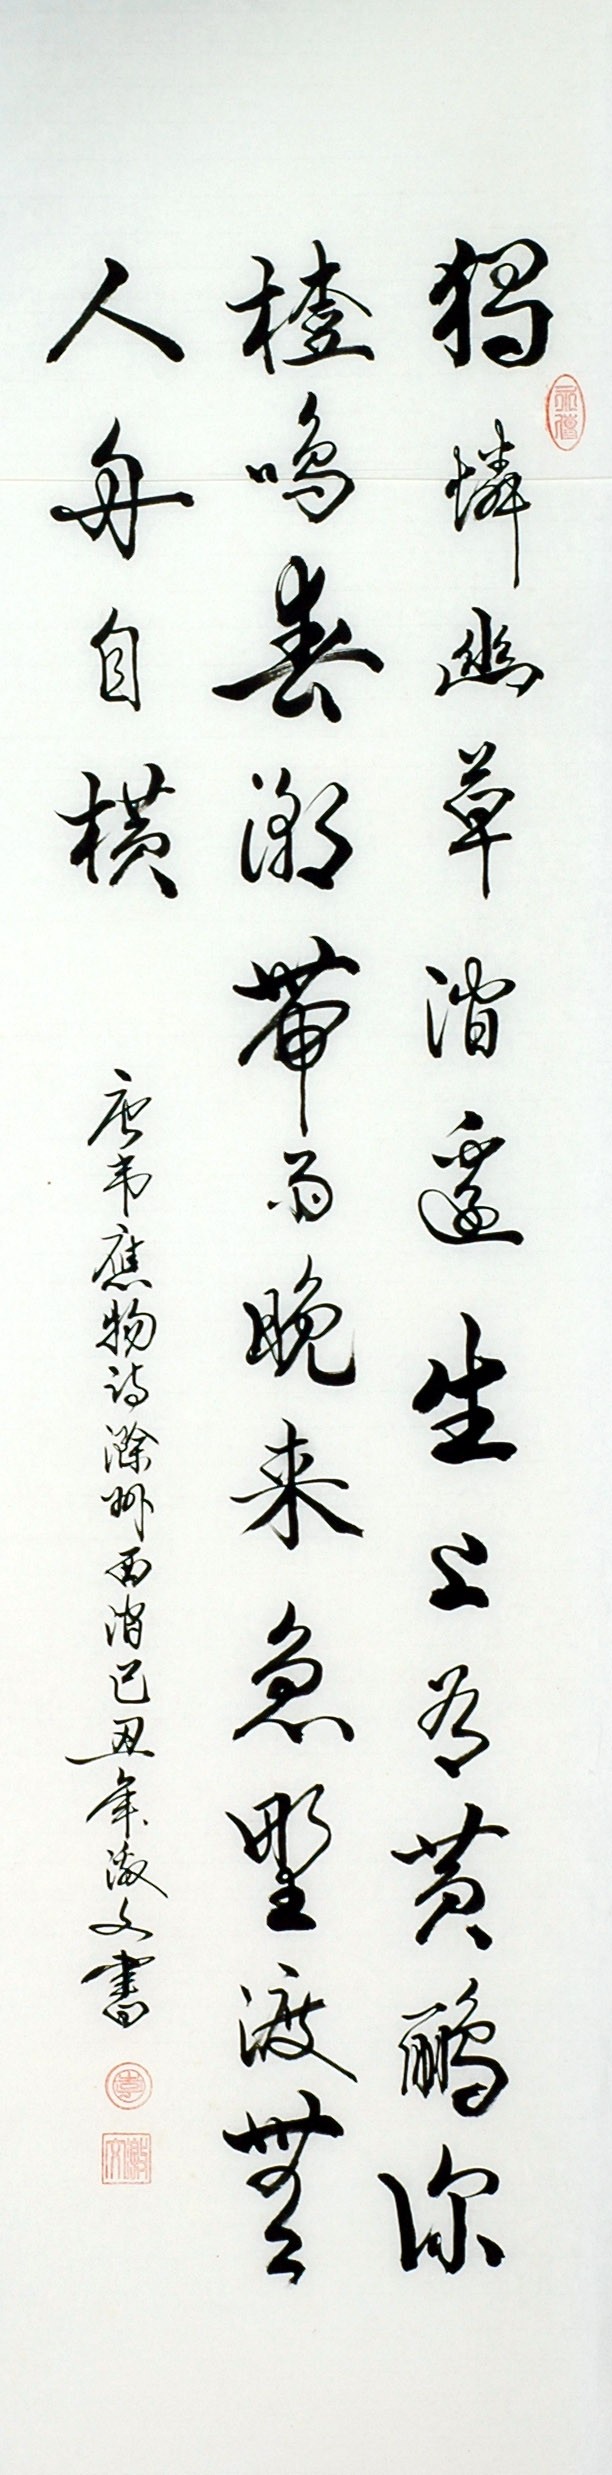 獨憐幽草澗邊生上有黃鸝深
樹鳴春潮帶雨晚来急野渡無
人舟自橫
唐韋應物詩滁州西澗己丑年文書